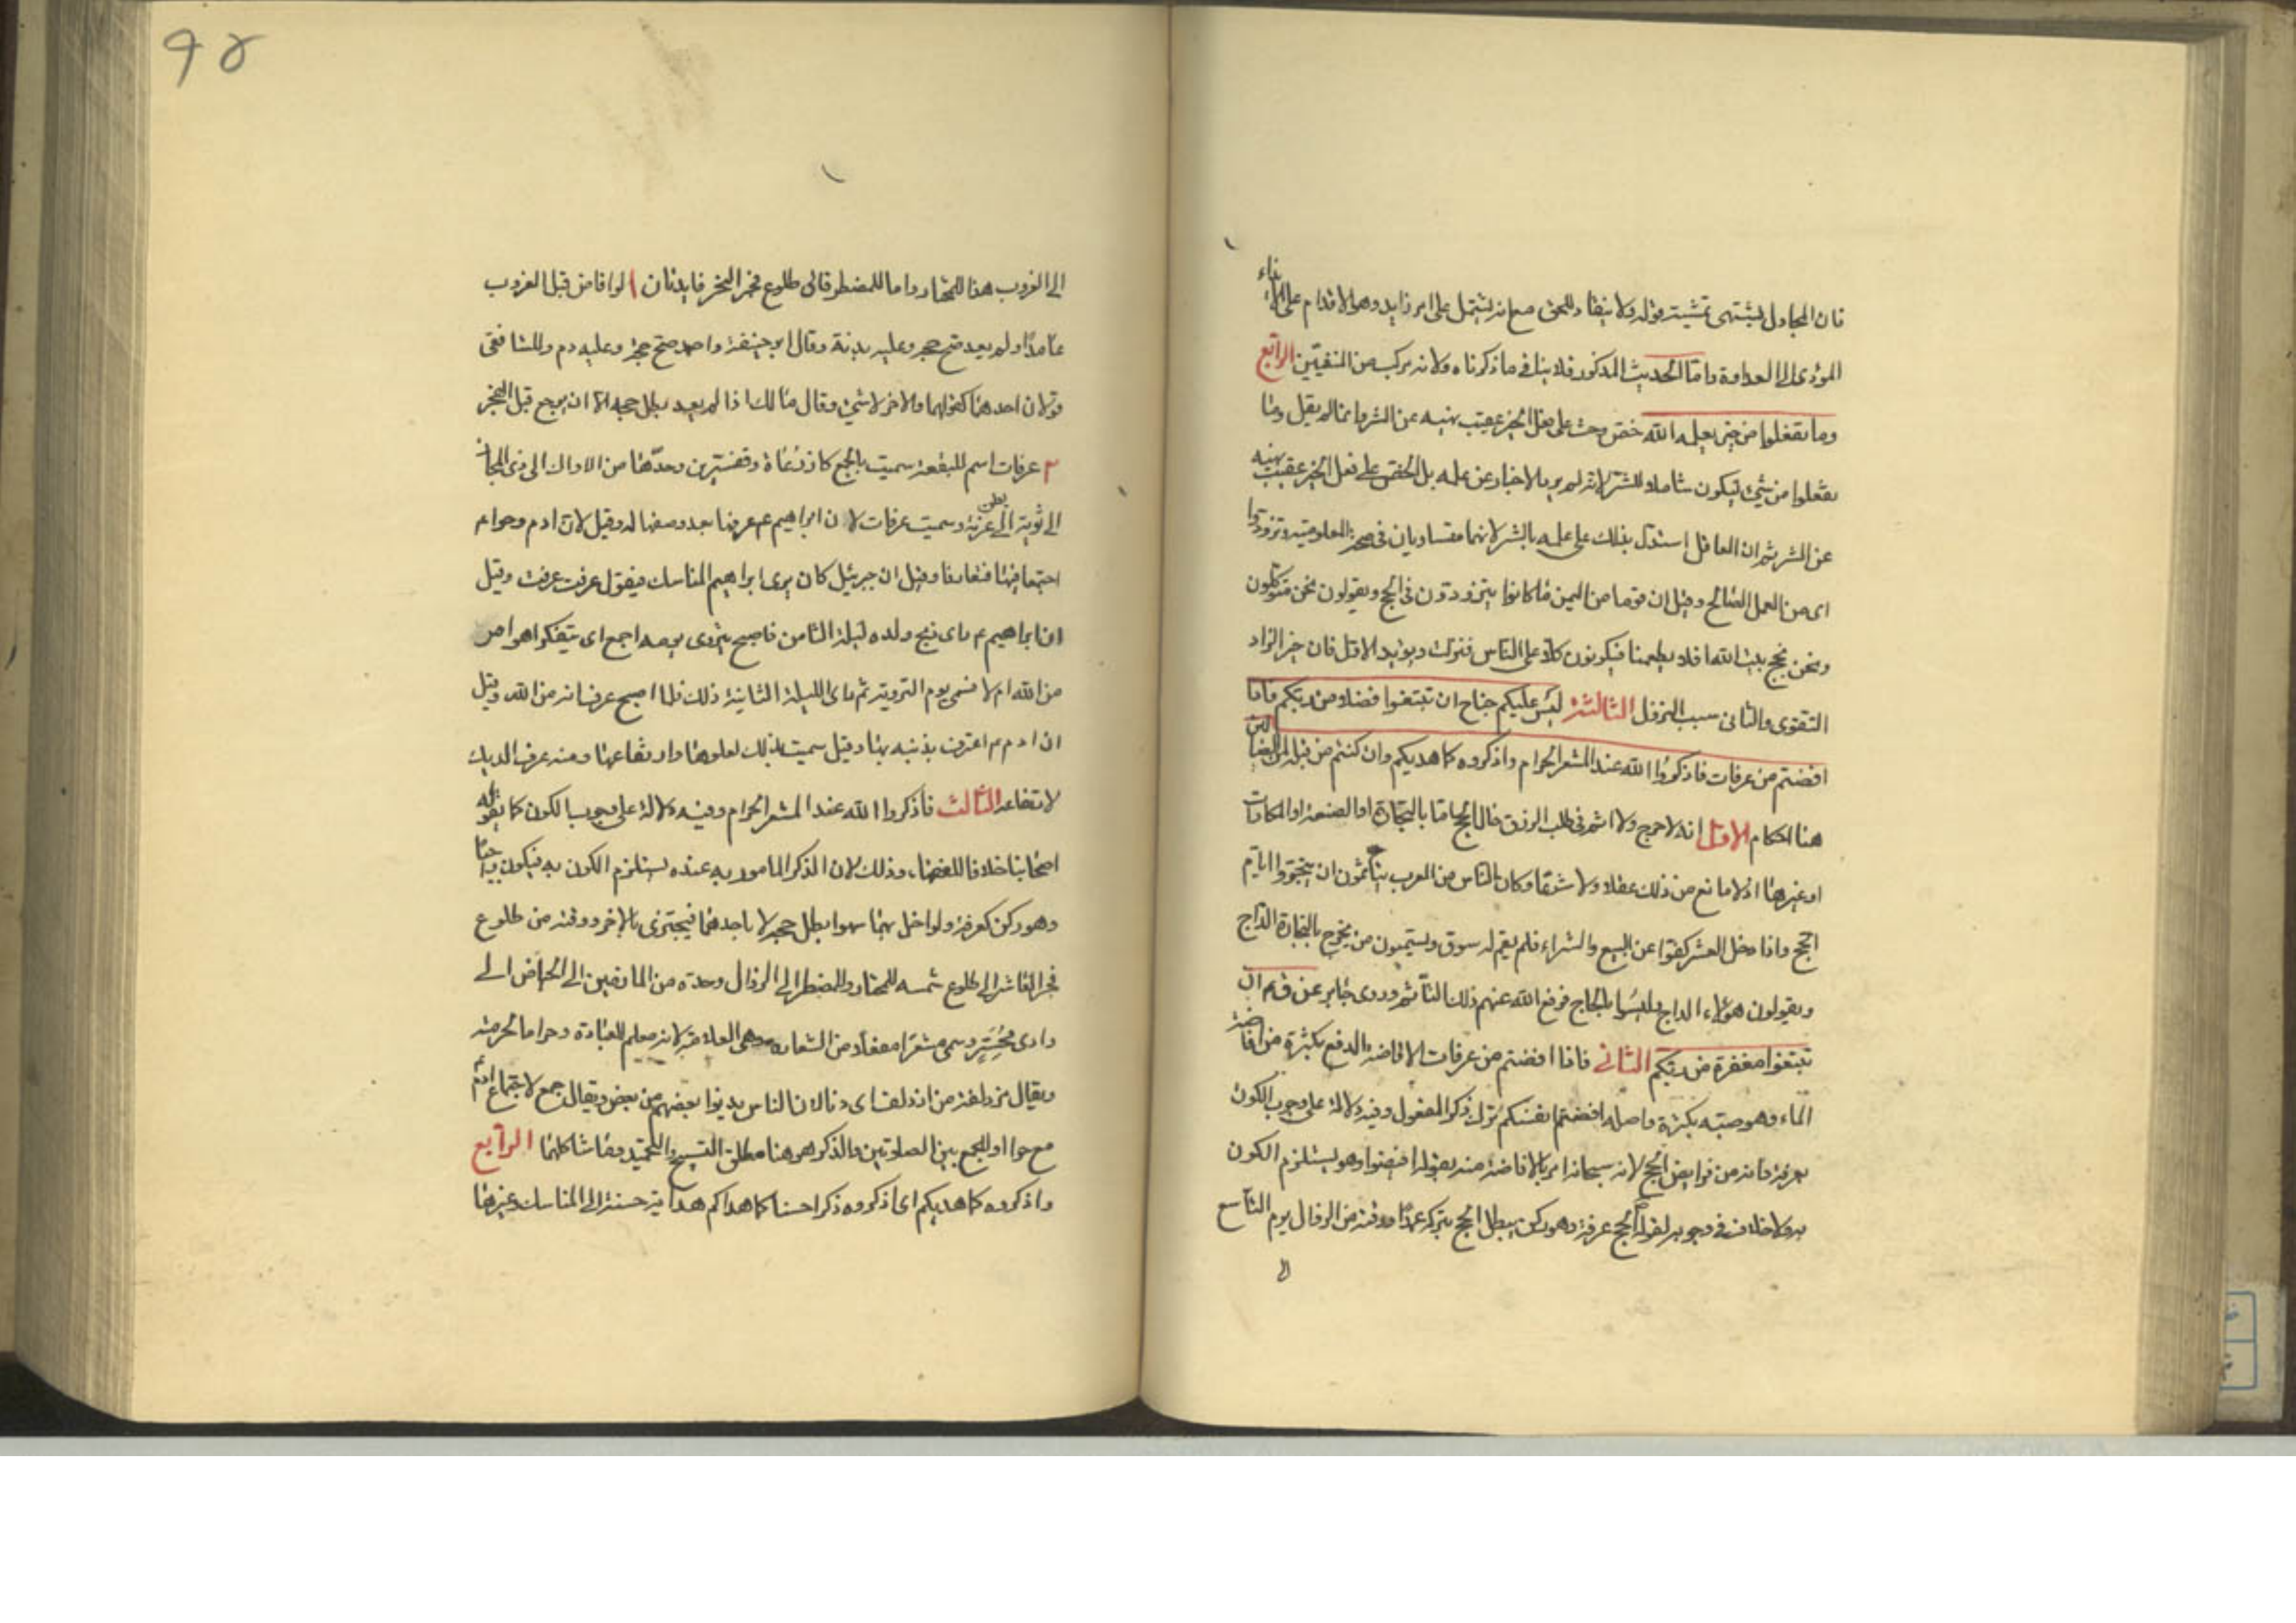 فان المجادل يشتهى تمشيت قوله ولا ينقاد للحق مع انه يشتمل على امر زايد وهو الاقدام على الايذاء
المؤدى الى العداوة واما الحديث المذكور فلا ينافى ما ذكرناه ولانه مركب من المنفيين الرابع
وما تفعلوا من خير يعلمه الله حض وحث على فعل الخير عقيب نهيه عن الشر وانما لم يقل وما
تفعلوا من شىء ليكون شاملا للشر لانه لم يرد الاخبار عن علمه بل الحض على فعل الخير عقيب نهيه
عن الشر ثم ان العاقل استدل بذلك على علمه بالشر لانهما متساويان فى صحة المعلومية وتزودوا
اى من العمل الصالح وقيل ان قوما من اليمن ما كانوا يتزودون فى الحج ويقولون نحن متوكلون
ونحن نحج بيت الله افلا يطعمنا فيكونون كلا على الناس فنزلت ويؤيد الاول فان خير الزاد
التقوى والثانى سبب النزول الثالثة ليس عليكم جناح ان تبتغوا فضلا من ربكم فاذا
افضتم من عرفات فاذكروا الله عند المشعر الحرام واذكروه كما هديكم وان كنتم من قبله لمن الضالين
هنا احكام الاول انه لا حرج ولا اثم فى طلب الرزق حال الحج اما بالتجارة او الصنعة او المكارات
او غيرها اذ لا مانع من ذلك عقلا ولا شرعا وكان الناس من العرب يتاثمون ان يتجروا ايام
الحج واذا دخل العشر كفوا عن البيع والشراء فلم يقم له سوق ويسمون من يخرج بالتجارة الداج
ويقولون هؤلاء الداج وليسوا بالحاج فرفع الله عنهم ذلك التأثم وروى جابر عن ق ع ان
تبتغوا مغفرة من ربكم الثانى فاذا افضتم من عرفات الافاضة الدفع بكثرة من افاضة
الماء وهو صبه بكثرة واصله افضتم انفسكم ترك ذكر المفعول وفيه دلالة على وجوب الكون
بعرفة وانه من فرايض الحج لانه سبحانه امر بالافاضة منه بقوله افيضوا وهو يستلزم الكون
به ولا خلاف فى وجوبه لقوله ص الحج عرفة وهو ركن يبطل الحج بتركه عمدا ووقته من الزوال يوم التاسع
الى
٩٥
الى الغروب هذا للمختار واما للمضطر فالى طلوع فجر النحر فايدتان ا لو افاض قبل الغروب
عامدا ولم يعد صح حجه وعليه بدنة وقال ابو حنيفة واحمد صح حجه وعليه دم وللشافعى
قولان احدهما كقولهما والاخر لا شىء وقال مالك اذا لم يعد بطل حجه الا ان يرجع قبل الفجر
٢ عرفات اسم للبقعة سميت بالجمع كاذرعاة وقنسرين وحدها من الاراك الى ذى المجاز
الى ثوية الى بطن عرنة وسميت عرفات لان ابراهيم ع عرفها بعد وصفها له وقيل لان ادم وحوا م
اجتمعا فيها فتعارفا وقيل ان جبرئيل كان يرى ابراهيم المناسك فيقول عرفت عرفت وقيل
ان ابراهيم ع راى ذبح ولده ليلة الثامن فاصبح يتروى يومه اجمع اى يتفكر اهو امر
من الله ام لا فسمى يوم التروية ثم راى الليلة الثانية ذلك فلما اصبح عرف انه من الله وقيل
ان ادم ع اعترف بذنبه بها وقيل سميت بذلك لعلوها وارتفاعها ومنه عرف الديك
لارتفاعه الثالث فاذكروا الله عند المشعر الحرام وفيه دلالة على وجوب الكون كما يقوله
اصحابنا خلافا للفقهاء وذلك لان الذكر المامور به عنده يستلزم الكون به فيكون واجبا
وهو ركن كعرفة ولو اخل بهما سهوا بطل حجه لا باحدهما فيجتزى بالاخر ووقته من طلوع
فجر العاشر الى طلوع شمسه للمختار وللمضطر الى الزوال وحده من المازمين الى الحياض الى
وادى محسر وسمى مشعرا مفعلا من الشعار وهى العلامة لانه معلم للعبادة وحراما لحرمته
ويقال مزدلفة من ازدلف اى دنا لان الناس يدنوا بعضهم من بعض ويقال جمع لاجتماع ادم ع
مع حوا او للجمع بين الصلوتين والذكر هو هنا مطلق التسبيح والتحميد وما شاكلهما الرابع
واذكروه كما هديكم اى اذكروه ذكرا حسنا كما هداكم هداية حسنة الى المناسك وغيرها